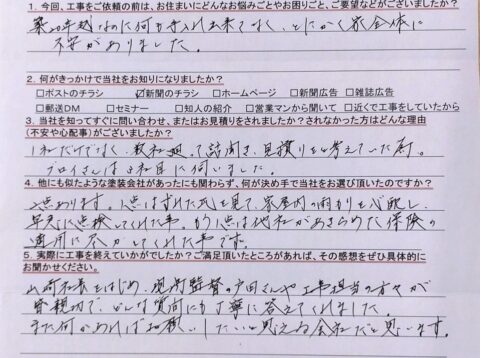 1. 今回、工事をご依頼の前は、お住まいにどんなお悩みごとやお困りごと、ご要望などがございましたか?
築20年越なのに何も手入れ出来てなく、とにかく家全体に
不安がありました。
2. 何がきっかけで当社をお知りになりましたか?
□ポストのチラシ ☑新聞のチラシ □ホームページ □新聞広告 □雑誌広告
□郵送DM □セミナー □知人の紹介 □営業マンから聞いて □近くで工事をしていたから
3. 当社を知ってすぐに問い合わせ、またはお見積りをされましたか?されなかった方はどんな理由
(不安や心配事)がございましたか?
1社だけでなく、数社廻って話聞き、見積りをと考えていた為。
プロイさんは3社目に伺いました。
4. 他にも似たような塗装会社があったにも関わらず、何が決め手で当社をお選び頂いたのですか?
2点あります。1点はずれた瓦を見て、家屋内の雨もりを心配し、
早急に点検してくれた事。もう1点は他社があきらめた保険の
適用に尽力してくれた事です。
5. 実際に工事を終えていかがでしたか?ご満足頂いたところがあれば、その感想をぜひ具体的に
お聞かせください。
山崎社長をはじめ、現場監督の戸田さんや工事担当の方々が
皆親切で、どんな質問にも丁寧に答えてくれました。
また何かあればお願いしたいと思える会社だと思います。